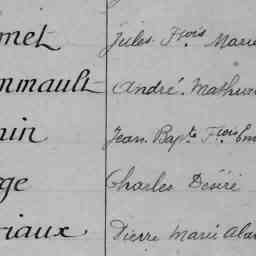 met Jules Fçois Marie
mmault André. Mathurin
nin Jean Bapte Fçois Em
ge Charles Désiré
riaux Pierre Marie Alex